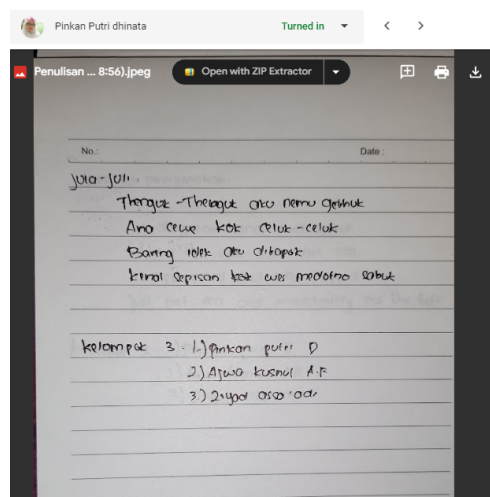 Pinkan Putri dhinata
Turned in
Penulisan ... 8:56).jpeg
Open with ZIP Extractor
No.:
Date :
Jula-Juli
Thenguk - Thenguk aku nemu gethuk
Ano cewe kok celuk - celuk
Bareng idek aku ditapuk
kenal sepisan kok wes
Kelompok 3 : 1.) Pinkan putri D
2.) Ajwa kusnul A.F
3.)